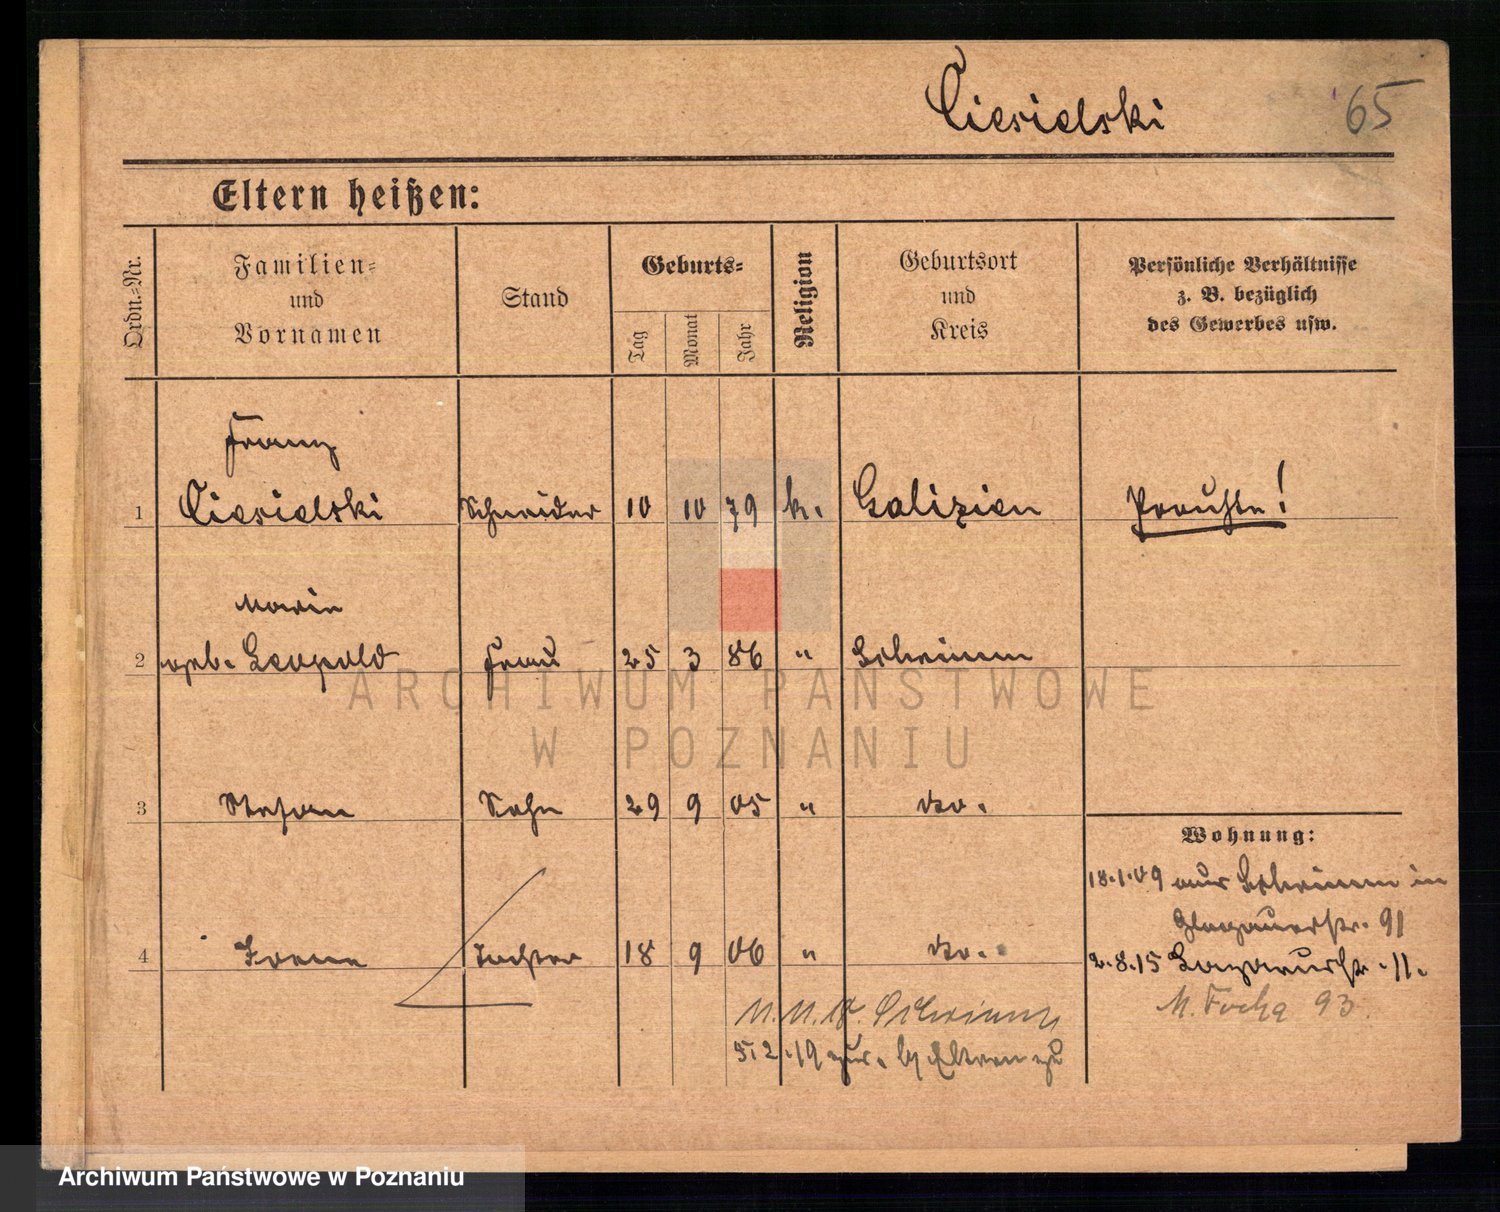 Ciesielski 65
Eltern heißen:
Ordn.=Nr.
Familien=
und
Vornamen
Stand
Geburts=
Tag
Monat
Jahr
Religion
Geburtsort
und
Kreis
Persönliche Verhältnisse
z. B. bezüglich
des Gewerbes usw.
Franz
1 Ciesielski Schneider 10 10 79 k. Galizien
Marie
2 geb. Leopold Frau 25 3 86 " Schrimm
3 Stefan Sohn 29 9 05 " do.
Wohnung:
18.1.09 aus Schrimm in
Glogauerstr. 91
4 Irene Tochter 18 9 06 " do.
2.8.15 -11.
M. Focha 93.
Schrimm
5.2.19 Eltern
ARCHIWUM PAŃSTWOWE
W POZNANIU
Archiwum Państwowe w Poznaniu